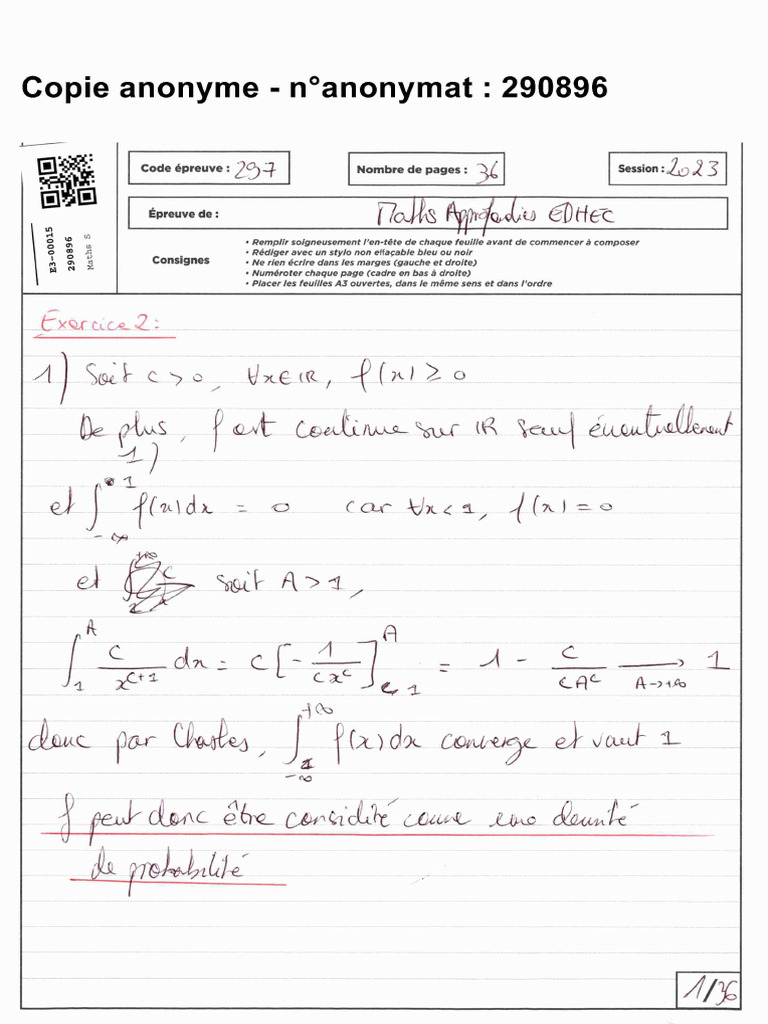 Copie anonyme - n°anonymat : 290896
E3-00015
290896
Maths S
Code épreuve : 297
Nombre de pages : 36
Session : 2023
Épreuve de : Maths Approfondies EDHEC
Consignes
• Remplir soigneusement l'en-tête de chaque feuille avant de commencer à composer
• Rédiger avec un stylo non effaçable bleu ou noir
• Ne rien écrire dans les marges (gauche et droite)
• Numéroter chaque page (cadre en bas à droite)
• Placer les feuilles A3 ouvertes, dans le même sens et dans l'ordre
Exercice 2:
1) Soit c > 0, ∀x∈IR, f(x) ≥ 0
De plus, f est continue sur IR sauf éventuellement
1)
et ∫_{-∞}^{1} f(x)dx = 0 car ∀x<1, f(x)=0
et soit A > 1,
∫_{1}^{A} c/x^{c+1} dx = c[-1/(cx^c)]_{1}^{A} = 1 - c/(cA^c) ⟶_{A→+∞} 1
donc par Chasles, ∫_{-∞}^{+∞} f(x)dx converge et vaut 1
f peut donc être considité comme une densité
de probabilité
1/36